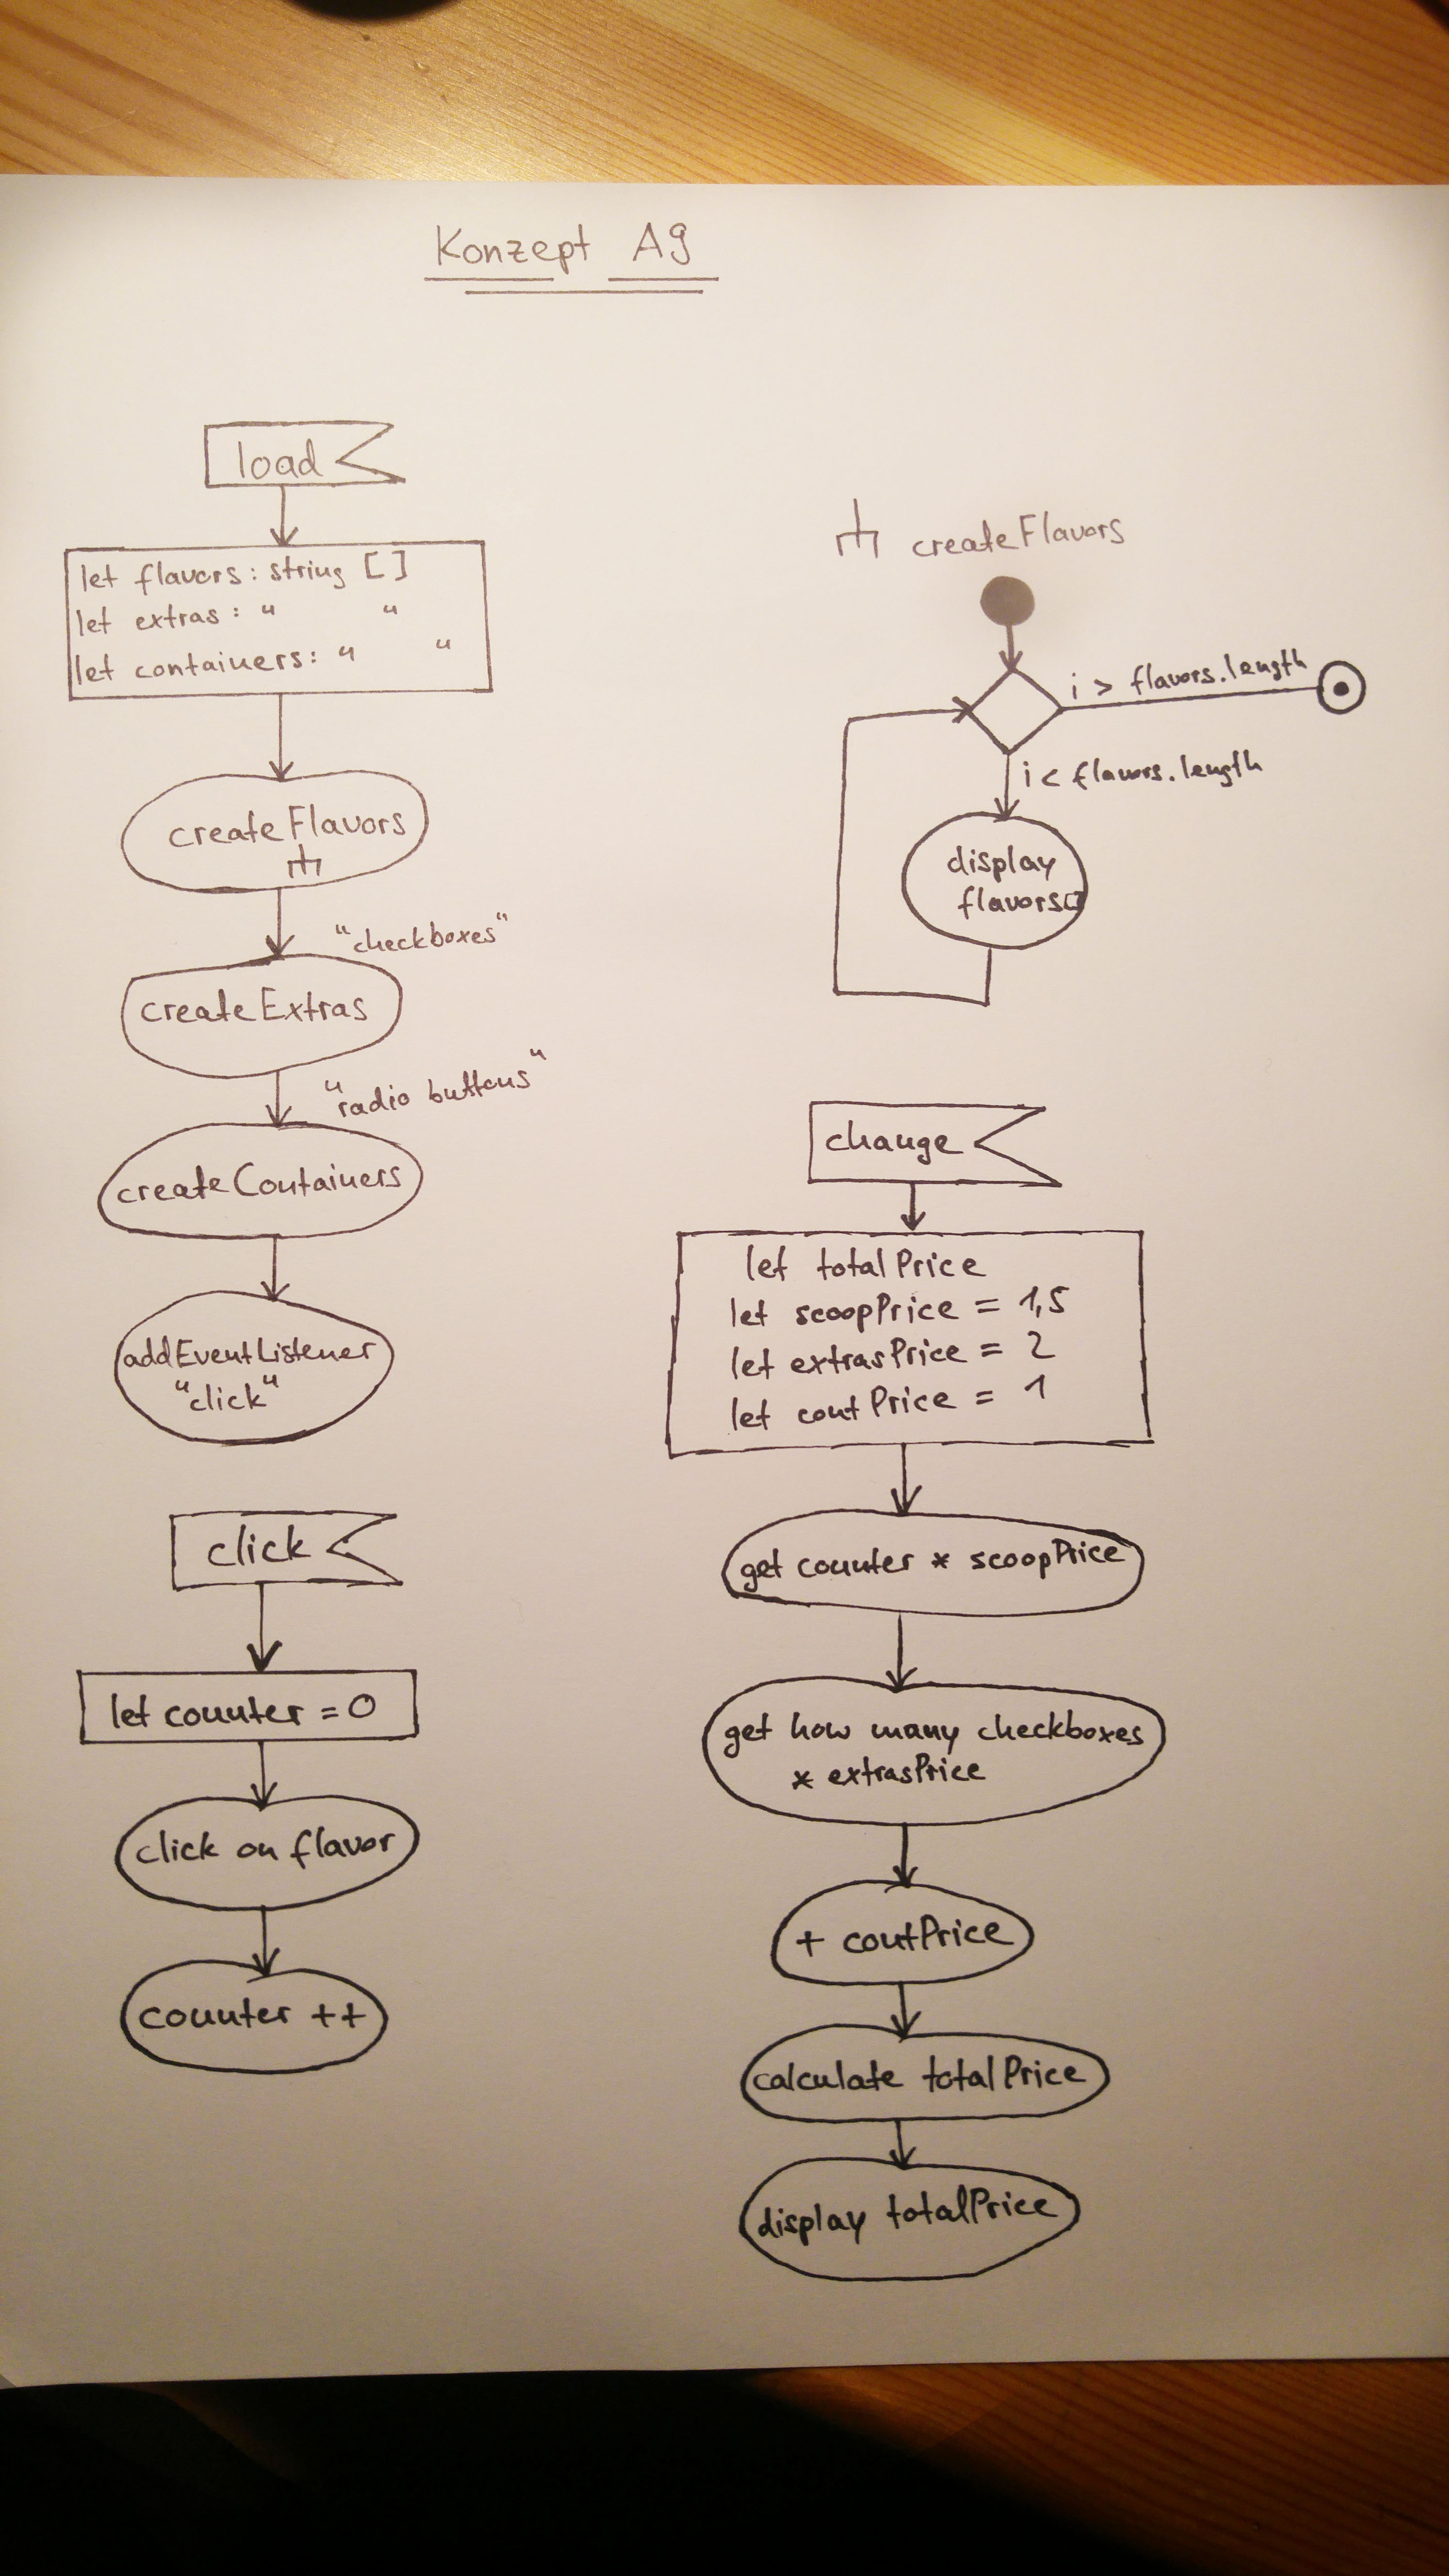 Konzept A9
load
let flavors: string []
let extras: " "
let containers: " "
createFlavors
"checkboxes"
createExtras
"radio buttons"
createContainers
addEventListener
"click"
click
let counter = 0
click on flavor
counter ++
createFlavors
i > flavors.length
i < flavors.length
display
flavors[]
change
let totalPrice
let scoopPrice = 1,5
let extrasPrice = 2
let contPrice = 1
get counter * scoopPrice
get how many checkboxes
* extrasPrice
+ contPrice
calculate totalPrice
display totalPrice